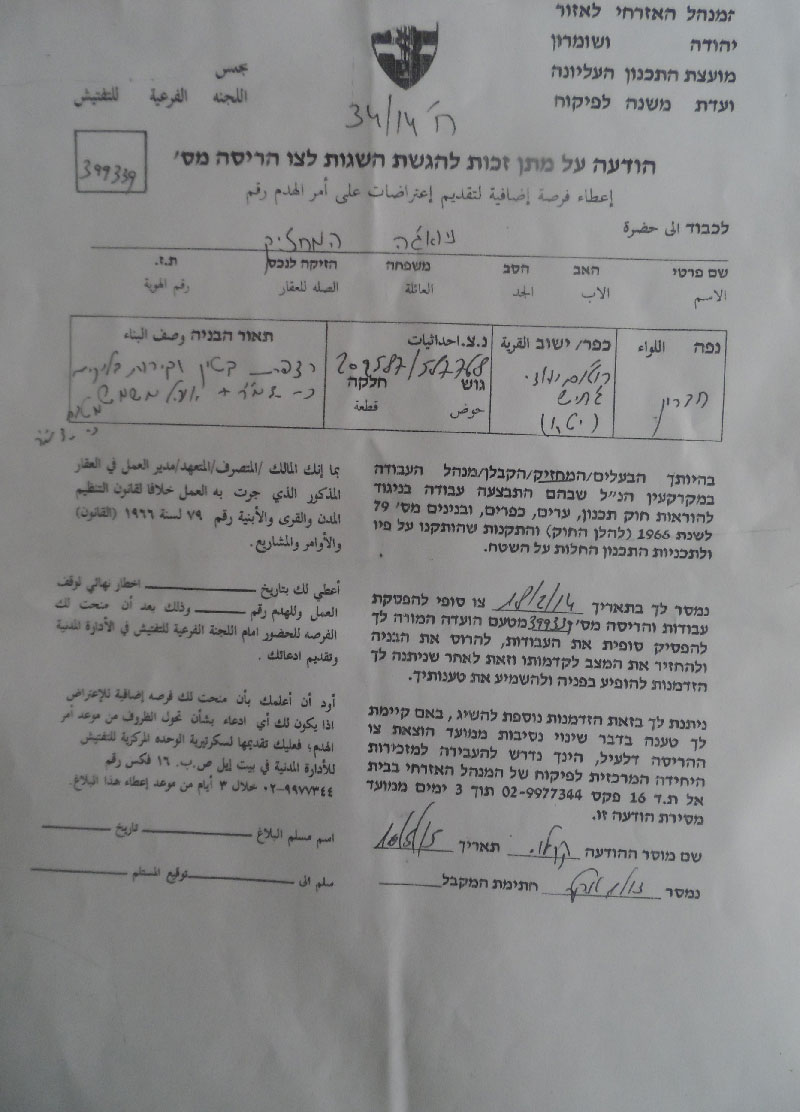 המנהל האזרחי לאזור
יהודה ושומרון
מועצת התכנון העליונה
ועדת משנה לפיקוח
بجلس
اللجنه الفرعية للتفتيش
ח' 34/14
הודעה על מתן זכות להגשת השגות לצו הריסה מס'
399339
إعطاء فرصة إضافية لتقديم إعتراضات على أمر الهدم رقم
לכבוד الى حضرة
המחזיק
שם פרטי האב הסב משפחה הזיקה לנכס ת.ז.
الاسم الاب الجد العائلة الصله للعقار رقم الهوية
נפה اللواء
חברון
כפר/ ישוב القرية
(יטא)
נ.צ. احداثيات
203587/587768
גוש חלקה
حوض قطعة
תאור הבניה وصف البناء
רצפת בטון
בהיותך הבעלים/המחזיק/הקבלן/מנהל העבודה
במקרקעין הנ"ל שבהם התבצעה עבודה בניגוד
להוראות חוק תכנון, ערים, כפרים, ובנינים מס' 79
לשנת 1966 (להלן החוק) והתקנות שהותקנו על פיו
ולתכניות התכנון החלות על השטח.
נמסר לך בתאריך 18/2/14 צו סופי להפסקת
עבודות והריסה מס' 399339 מטעם הועדה המורה לך
להפסיק סופית את העבודות, להרוס את הבניה
ולהחזיר את המצב לקדמותו וזאת לאחר שניתנה לך
הזדמנות להופיע בפניה ולהשמיע את טענותיך.
ניתנת לך בזאת הזדמנות נוספת להשיג, באם קיימת
לך טענה בדבר שינוי נסיבות ממועד הוצאת צו
ההריסה דלעיל, הינך נדרש להעבירה למזכירות
היחידה המרכזית לפיקוח של המנהל האזרחי בבית
אל ת.ד 16 פקס 02-9977344 תוך 3 ימים ממועד
מסירת הודעה זו.
שם מוסר ההודעה תאריך
נמסר חתימת המקבל
بما إنك المالك /المتصرف/المتعهد/مدير العمل في العقار
المذكور الذي جرت به العمل خلافا لقانون التنظيم
المدن والقرى والأبنية رقم ٧٩ لسنة ١٩٦٦ (القانون)
والأوامر والمشاريع.
أعطي لك بتاريخ اخطار نهائي لوقف
العمل وللهدم رقم وذلك بعد أن منحت لك
الفرصه للحضور امام اللجنة الفرعية للتفتيش في الأدارة المدنية
وتقديم ادعائك .
أود أن أعلمك بأن منحت لك فرصه إضافية للإعتراض
اذا يكون لك أي ادعاء بشأن تحول الظروف من موعد أمر
الهدم، فعليك تقديمها لسكرتيرية الوحده المركزية للتفتيش
للأدارة المدنية في بيت إيل ص.ب. ١٦ فكس رقم
٠٢-٩٩٧٧٣٤٤ خلال ٣ أيام من موعد إعطاء هذا البلاغ.
اسم مسلم البلاغ تاريخ
سلم الى توقيع المستلم